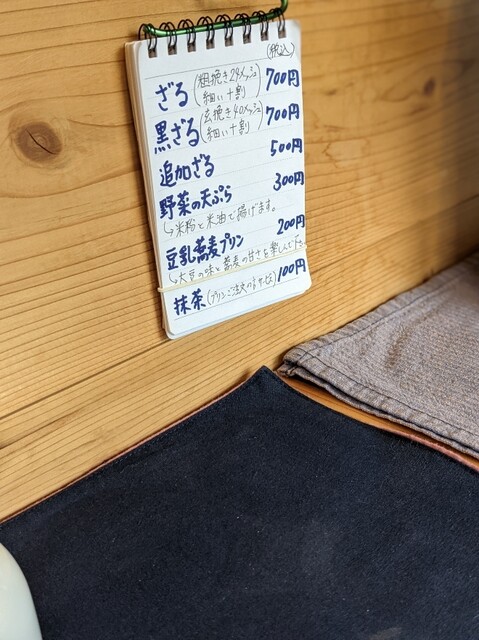 (税込)
ざる (粗挽き24メッシュ 細い十割) 700円
黒ざる (玄挽き40メッシュ 細い十割) 700円
追加ざる 500円
野菜の天ぷら 300円
↳米粉と米油で揚げます。
豆乳蕎麦プリン 200円
↳大豆の味と蕎麦の甘さを楽しんで下
抹茶 (プリンご注文の方 100円